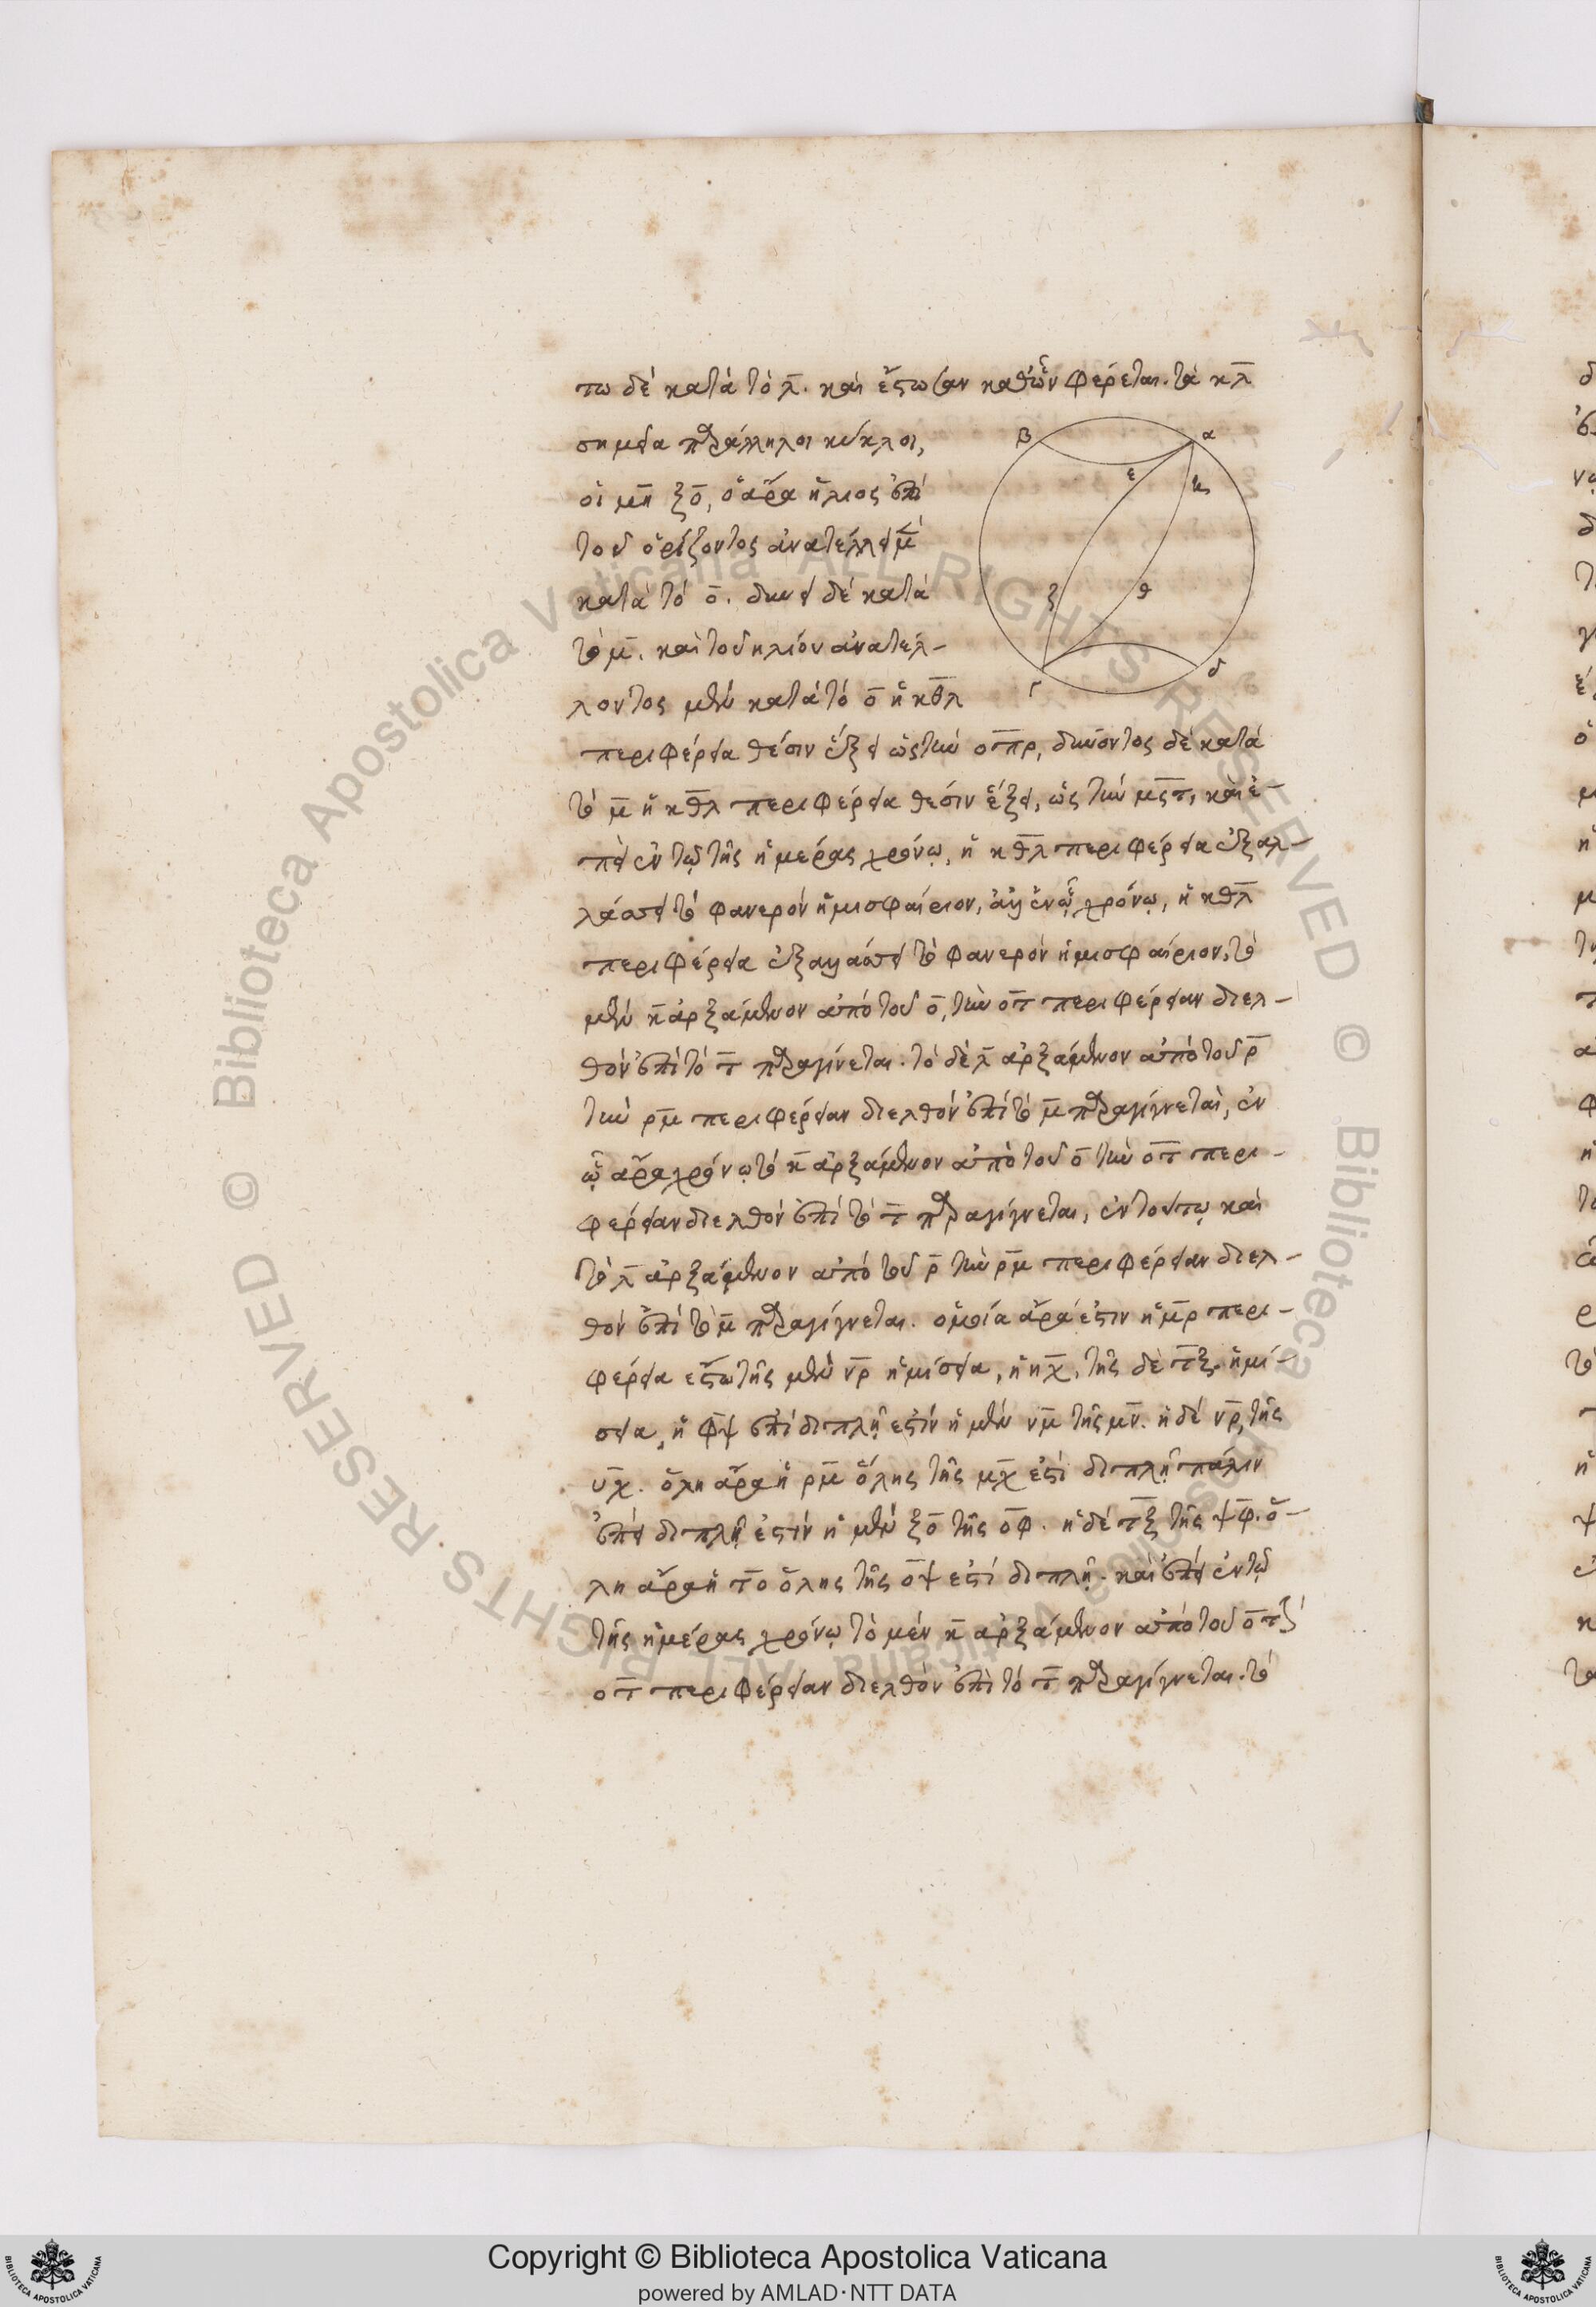 τω δὲ κατὰ τὸ λ̅. καὶ ἔστωσαν καθ' ὧν φέρεται. τὰ κ̅λ̅
σημεῖα παράλληλοι κύκλοι,
οἱ μ̅η̅ ξ̅ο̅, ὁ ἄρα ἥλιος ἐπὶ
τοῦ ὁρίζοντος ἀνατέλλει μ̅ὲ̅
κατὰ τὸ ο̅. δύνει δὲ κατὰ
τὸ μ̅. καὶ τοῦ ἡλίου ἀνατέλ-
λοντος μὲν κατὰ τὸ ο̅ ἡ κ̅θ̅λ̅
περιφέρεια θέσιν ἕξει ὡς τὴν ο̅π̅ρ̅, δύνοντος δὲ κατὰ
τὸ μ̅ ἡ κ̅θ̅λ̅ περιφέρεια θέσιν ἕξει, ὡς τὴν μ̅ς̅τ̅, καὶ ἐ-
πεὶ ἐν τῷ τῆς ἡμέρας χρόνῳ, ἡ κ̅θ̅λ̅ περιφέρεια ἐξαλ-
λάσσει τὸ φανερὸν ἡμισφαίριον, ἀλλ' ἐν ᾧ χρόνῳ, ἡ κ̅θ̅λ̅
περιφέρεια ἐξαλλάσσει τὸ φανερὸν ἡμισφαίριον, τὸ
μὲν κ̅ ἀρξάμενον ἀπὸ τοῦ ο̅, τὴν ο̅τ̅ περιφέρειαν διελ-
θὸν ἐπὶ τὸ τ̅ παραγίνεται. τὸ δὲ λ̅ ἀρξάμενον ἀπὸ τοῦ ρ̅
τὴν ρ̅μ̅ περιφέρειαν διελθὸν ἐπὶ τὸ μ̅ παραγίγνεται, ἐν
ᾧ ἄρα χρόνῳ τὸ κ̅ ἀρξάμενον ἀπὸ τοῦ ο̅ τὴν ο̅τ̅ περι-
φέρειαν διελθὸν ἐπὶ τὸ τ̅ παραγίγνεται, ἐν τούτῳ καὶ
τὸ λ̅ ἀρξάμενον ἀπὸ τοῦ ρ̅ τὴν ρ̅μ̅ περιφέρειαν διελ-
θὸν ἐπὶ τὸ μ̅ παραγίγνεται. ὁμοία ἄρα ἐστὶν ἡ μ̅ρ̅ περι-
φέρεια ἔστω τῆς μὲν ν̅ρ̅ ἡμίσεια, ἡ η̅χ̅, τῆς δὲ τ̅ξ̅. ἡμί-
σεια, ἡ φ̅ψ̅ ἐπὶ διπλῆ ἐστὶν ἡ μὲν ν̅μ̅ τῆς μ̅ν̅. ἡ δὲ ν̅ρ̅, τῆς
υ̅χ̅. ὅλη ἄρα ἡ ρ̅μ̅ ὅλης τῆς μ̅χ̅ ἐστὶ διπλῆ πάλιν
ἐπεὶ διπλῆ ἐστὶν ἡ μὲν ξ̅ο̅ τῆς ο̅φ̅. ἡ δὲ τ̅ξ̅ τῆς ψ̅φ̅. ὅ-
λη ἄρα ἡ τ̅ο̅ ὅλης τῆς ο̅ψ̅ ἐστὶ διπλῆ. καὶ ἐπεὶ ἐν τῷ
τῆς ἡμέρας χρόνῳ τὸ μὲν κ̅ ἀρξάμενον ἀπὸ τοῦ ο̅ τὴν
ο̅τ̅ περιφέρειαν διελθὸν ἐπὶ τὸ τ̅ παραγίγνεται. τὸ
β α
ε κ
ζ θ
γ δ
Copyright © Biblioteca Apostolica Vaticana
powered by AMLAD·NTT DATA
© Biblioteca Apostolica Vaticana ALL RIGHTS RESERVED
© Biblioteca Apostolica Vaticana ALL RIGHTS RESERVED
BIBLIOTECA APOSTOLICA VATICANA
BIBLIOTECA APOSTOLICA VATICANA